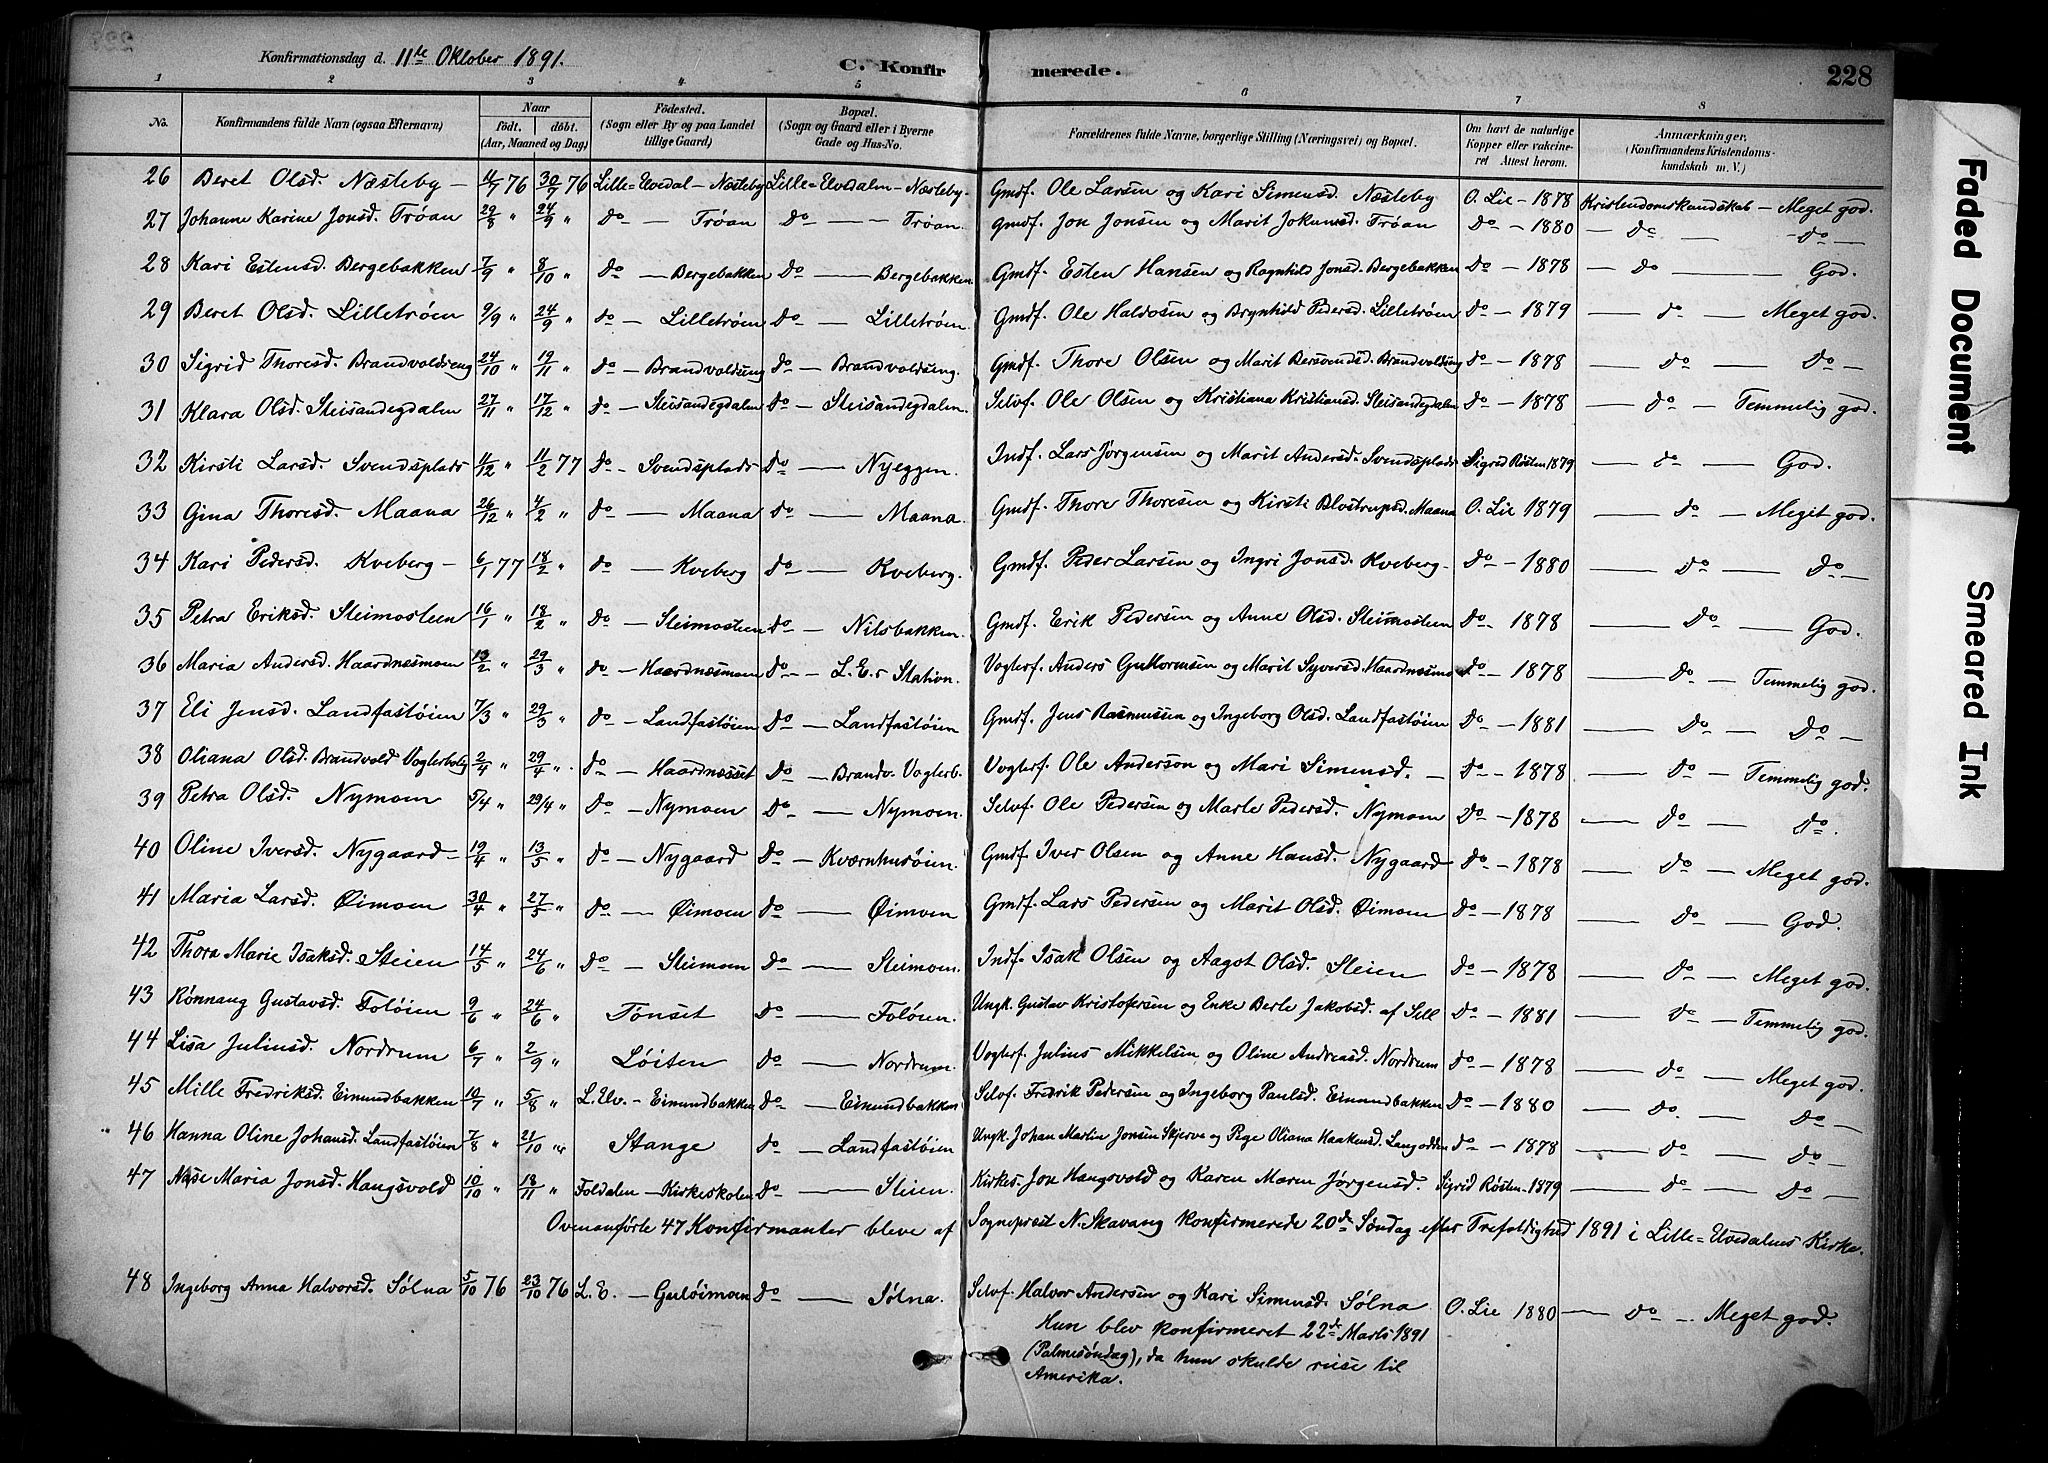 Konfirmationsdag d. 11te Oktober 1891. C. Konfirmerede. 228
1 2 3 4 5 6 7 8
No. Konfirmandens fulde Navn (ogsaa Efternavn) Naar födt. döbt. (Aar, Maaned og Dag) Födested. (Sogn eller By og paa Landel tillige Gaard) Bopæl. (Sogn og Gaard eller i Byerne Gade og Hus-No. Forældrenes fulde Navne, borgerlige Stilling (Næringsvei) og Bopæl. Om havt de naturlige Kopper eller vakcineret Attest herom. Anmærkninger. (Konfirmandens Kristendomskundskab m. V.)
26 Beret Olsd. Næsteby - 11/7 76 30/7 76 Lille=Elvedal - Næsteby Lille=Elvedalen - Næsteby. Gmdf. Ole Larsen og Kari Simensd. Næsteby O. Lie - 1878 Kristendomskundskab - Meget god.
27 Johanne Karine Jonsd. Trøan 29/8 " 24/9 " do - Trøan do - Trøan. Gmdf. Jon Jonsen og Marit Jokumsd. Trøan do - 1880 - do - do -
28 Kari Estensd. Bergebakken 7/9 " 8/10 " do - Bergebakken do - Bergebakken. Gmdf. Esten Hansen og Ragnhild Jonsd. Bergebakken do - 1878 - do - God.
29 Beret Olsd. Lilletrøen 9/9 " 24/9 " do - Lilletrøen do - Lilletrøen. Gmdf. Ole Haldosen og Brynhild Pedersd. Lilletrøen do - 1879 - do - Meget god.
30 Sigrid Thoresd. Brandvoldseng 24/10 " 19/11 " do - Brandvoldseng do - Brandvoldseng. Gmdf. Thore Olsen og Marit Bersvendsd. Brandvoldseng do - 1878 - do - do -
31 Klara Olsd. Steisandegdalen 27/11 " 17/12 " do - Steisandegdalen do - Steisandegdalen. Selvf. Ole Olsen og Kristiana Kristiansd. Steisandegdalen do - 1878 - do - Temmelig god.
32 Kirsti Larsd. Svendsplads 11/12 " 11/2 77 do - Svendsplads do - Nyeggen. Indf. Lars Jørgensen og Marit Andersd. Svendsplads Sigrid Røsten 1879 - do - God.
33 Gina Thoresd. Maana 26/12 " 4/2 " do - Maana do - Maana. Gmdf. Thore Thoresen og Kirsti Blostrupsd. Maana O. Lie 1879 - do - Meget god.
34 Kari Pedersd. Kveberg - 6/1 77 18/2 " do - Kveberg do - Kveberg. Gmdf. Peder Larsen og Ingri Jonsd. Kveberg - do - 1880 - do - do -
35 Petra Eriksd. Steimosteen 16/1 " 18/2 " do - Steimosteen do - Nilsbakken. Gmdf. Erik Pedersen og Anne Olsd. Steimosteen do - 1878 - do - God.
36 Maria Andersd. Haardnesmoen 13/2 " 29/3 " do - Haardnesmoen do - L. E.s Station. Vogterf. Anders Guttormsen og Marit Syversd. Haardnesmo do - 1878 - do - Temmelig god.
37 Eli Jensd. Landfastøien 7/3 " 29/3 " do - Landfastøien do - Landfastøien Gmdf. Jens Rasmussen og Ingeborg Olsd. Landfastøien do - 1881 - do - do -
38 Oliana Olsd. Brandvold Vogterbolig 2/4 " 29/4 " do - Haardnesset do - Brandv. Vogterb. Vogterf. Ole Anderson og Mari Simensd. - do - 1878 - do - Temmelig god.
39 Petra Olsd. Nymoen 5/4 " 29/4 " do - Nymoen do - Nymoen. Selvf. Ole Pedersen og Marte Pedersd. Nymoen do - 1878 - do - do.
40 Oline Iversd. Nygaard - 19/4 " 13/5 " do - Nygaard do - Kværnhusøien. Gmdf. Iver Olsen og Anne Hansd. Nygaard do - 1878 - do - Meget god.
41 Maria Larsd. Øimoen 30/4 " 27/5 " do - Øimoen do - Øimoen Gmdf. Lars Pedersen og Marit Olsd. Øimoen do - 1878 - do - God.
42 Thora Marie Isaksd. Steien 14/5 " 24/6 " do - Steimoen do - Steimoen. Indf. Isak Olsen og Aagot Olsd. Steien do - 1878 - do - Meget god.
43 Rønnaug Gustavsd. Foløien 9/6 " 24/6 " Tønset do - Foløien. Ungk. Gustav Kristofersen og Enke Berte Jakobsd. af Sell do - 1881 - do - Temmelig god.
44 Lisa Juliusd. Nordrum 6/7 " 2/9 " Løiten do - Nordrum. Vogterf. Julius Mikkelsen og Oline Andreasd. Nordrum do - 1878 - do - Meget god.
45 Mille Fredriksd. Eimundbakken 10/7 " 5/8 " L. Elv. - Eimundbakken do - Eimundbakken Selvf. Fredrik Pedersen og Ingeborg Paulsd. Eimundbakken do - 1880 - do. - do -
" 46 Hanna Oline Johansd. Landfastøien 7/8 " 21/10 " Stange do - Landfastøien Ungk. Johan Martin Jonsen Skjerve og Pige Oliana Haakensd. Langodden do - 1878 - do - do -
47 Maria Jonsd. Haugsvold 10/10 " 18/11 " Foldalen - Kirkeskolen do - Steien. Kirkes. Jon Haugsvold og Karen Maren Jørgensd. Sigrid Røsten - 1879 - do - do -
Ovenanførte 47 Konfirmanter bleve af Sognepræst N. Skavang konfirmerede 20de Søndag efter Trefoldighed 1891 i Lille=Elvedalens Kirke.
48 Ingeborg Anna Halvorsd. Sølna 5/10 76 23/10 76 L. E. - Guløimoen do - Sølna. Selvf. Halvor Andersen og Kari Simensd. Sølna O. Lie 1880 - do - Meget god.
Hun blev konfirmeret 22de Marts 1891
(Palmesøndag), da hun skulde reise til
Amerika.
Faded Document
Smeared Ink